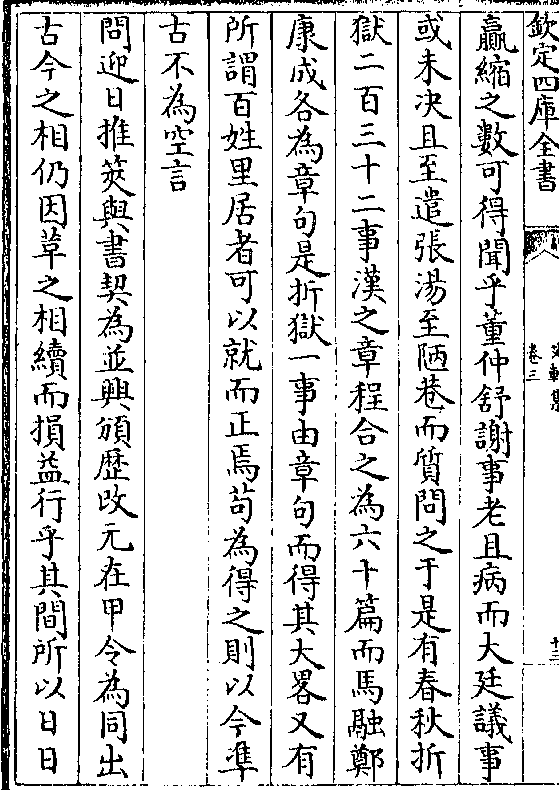 欽定四庫全書
卷三
十三
贏縮之數可得聞乎董仲舒謝事老且病而大廷議事
或未決且至遣張湯至陋巷而質問之于是有春秋折
獄二百三十二事漢之章程合之為六十篇而馬融鄭
康成各為章句是折獄一事由章句而得其大畧又有
所謂百姓里居者可以就而正焉苟為得之則以今凖
古不為空言
問迎日推筴與書契為並興頒歴改元在甲令為同出
古今之相仍因革之相續而損益行乎其間所以日日